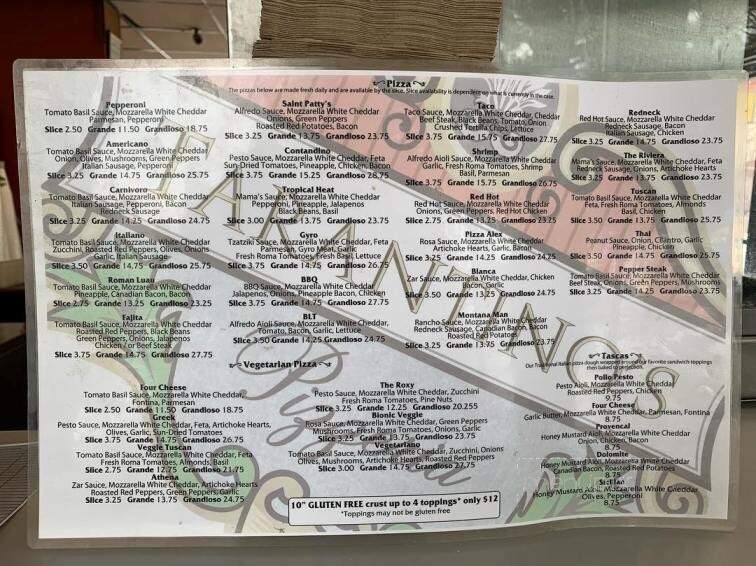 Pizza
The pizzas below are made fresh daily and are available by the slice. Slice availability is dependent up what is currently in the case.
Pepperoni
Tomato Basil Sauce, Mozzarella White Cheddar
Parmesan, Pepperoni
Slice 2.50 Grande 11.50 Grandioso 18.75
Americano
Tomato Basil Sauce, Mozzarella White Cheddar
Onion, Olives, Mushrooms, Green Peppers
Italian Sausage, Pepperoni
Slice 3.25 Grande 14.75 Grandioso 25.75
Carnivoro
Tomato Basil Sauce, Mozzarella White Cheddar
Italian Sausage, Pepperoni, Bacon
Redneck Sausage
Slice 3.25 Grande 14.25 Grandioso 24.75
Italiano
Tomato Basil Sauce, Mozzarella White Cheddar
Zucchini, Roasted Red Peppers, Olives, Onions
Garlic, Italian Sausage
Slice 3.50 Grande 14.75 Grandioso 25.75
Roman Luau
Tomato Basil Sauce, Mozzarella White Cheddar
Pineapple, Canadian Bacon, Bacon
Slice 2.75 Grande 13.25 Grandioso 23.25
Fajita
Tomato Basil Sauce, Mozzarella White Cheddar
Roasted Red Peppers, Black Beans
Green Peppers, Onions, Jalapenos
Chicken or Beef Steak
Slice 3.75 Grande 14.75 Grandioso 27.75
Saint Patty's
Alfredo Sauce, Mozzarella White Cheddar
Onions, Green Peppers
Roasted Red Potatoes, Bacon
Slice 3.25 Grande 13.75 Grandioso 23.75
Contandino
Pesto Sauce, Mozzarella White Cheddar, Feta
Sun-Dried Tomatoes, Pineapple, Chicken, Bacon
Slice 3.75 Grande 15.25 Grandioso 28.75
Tropical Heat
Mama's Sauce, Mozzarella White Cheddar
Pepperoni, Pineapple, Jalapenos
Black Beans, Basil
Slice 3.00 Grande 13.75 Grandioso 23.75
Gyro
Tzatziki Sauce, Mozzarella White Cheddar, Feta
Parmesan, Gyro Meat, Garlic
Fresh Roma Tomatoes, Fresh Basil, Lettuce
Slice 3.75 Grande 14.75 Grandioso 26.75
BBQ
BBQ Sauce, Mozzarella White Cheddar
Jalapenos, Onions, Pineapple Bacon, Chicken
Slice 3.75 Grande 14.75 Grandioso 27.75
BLT
Alfredo Aioli Sauce, Mozzarella White Cheddar,
Tomato, Bacon, Garlic, Lettuce
Slice 3.50 Grande 14.25 Grandioso 24.75
Taco
Taco Sauce, Mozzarella White Cheddar, Cheddar
Beef Steak, Black Beans, Tomato, Onion
Crushed Tortilla Chips, Lettuce
Slice 3.75 Grande 15.75 Grandioso 27.75
Shrimp
Alfredo Aioli Sauce, Mozzarella White Cheddar
Garlic, Fresh Roma Tomatoes, Shrimp
Basil, Parmesan
Slice 3.75 Grande 15.75 Grandioso 26.75
Red Hot
Red Hot Sauce, Mozzarella White Cheddar
Onions, Green Peppers, Red Hot Chicken
Slice 2.75 Grande 13.25 Grandioso 23.75
Pizza Alex
Rosa Sauce, Mozzarella White Cheddar
Artichoke Hearts, Garlic, Bacon
Slice 3.25 Grande 14.75 Grandioso 24.75
Blanca
Zar Sauce, Mozzarella White Cheddar, Chicken
Onion, Garlic
Slice 3.50 Grande 13.25 Grandioso 24.75
Montana Man
Rancho Sauce, Mozzarella White Cheddar
Redneck Sausage, Canadian Bacon, Bacon
Roasted Red Potatoes
Slice 3.25 Grande 13.75 Grandioso 23.75
Redneck
Red Hot Sauce, Mozzarella White Cheddar
Redneck Sausage, Bacon
Italian Sausage, Chicken
Slice 3.25 Grande 14.25 Grandioso 23.75
The Riviera
Mama's Sauce, Mozzarella White Cheddar, Feta
Redneck Sausage, Onions, Artichoke Hearts
Slice 3.25 Grande 13.75 Grandioso 23.75
Tuscan
Tomato Basil Sauce, Mozzarella White Cheddar
Feta, Fresh Roma Tomatoes, Almonds
Basil, Chicken
Slice 3.50 Grande 13.75 Grandioso 25.75
Thai
Peanut Sauce, Onion, Cilantro, Garlic
Pineapple, Chicken
Slice 3.50 Grande 14.75 Grandioso 25.75
Pepper Steak
Tomato Basil Sauce, Mozzarella White Cheddar
Beef Steak, Onions, Green Peppers, Mushrooms
Slice 3.25 Grande 14.25 Grandioso 25.75
TARANTINO'S
Pizzeria
Vegetarian Pizza
Four Cheese
Tomato Basil Sauce, Mozzarella White Cheddar,
Fontina, Parmesan
Slice 2.50 Grande 11.50 Grandioso 18.75
Greek
Pesto Sauce, Mozzarella White Cheddar, Feta, Artichoke Hearts,
Olives, Garlic, Sun-Dried Tomatoes
Slice 3.75 Grande 14.75 Grandioso 26.75
Veggie Tuscan
Tomato Basil Sauce, Mozzarella White Cheddar, Feta
Fresh Roma Tomatoes, Almonds, Basil
Slice 2.75 Grande 12.75 Grandioso 21.75
Athena
Zar Sauce, Mozzarella White Cheddar, Artichoke Hearts
Roasted Red Peppers, Green Peppers, Garlic
Slice 3.25 Grande 13.75 Grandioso 24.75
The Roxy
Pesto Sauce, Mozzarella White Cheddar, Zucchini
Fresh Roma Tomatoes, Pine Nuts
Slice 3.25 Grande 12.25 Grandioso 20.255
Bionic Veggie
Rosa Sauce, Mozzarella White Cheddar, Green Peppers
Mushrooms, Fresh Roma Tomatoes, Onions, Garlic
Slice 3.25 Grande 13.75 Grandioso 23.75
Vegetariano
Tomato Basil Sauce, Mozzarella White Cheddar, Zucchini, Onions
Olives, Mushrooms, Artichoke Hearts, Roasted Red Peppers
Slice 3.00 Grande 14.75 Grandioso 27.75
Tascas
Our Traditional Italian pizza dough wrapped around our favorite sandwich toppings
then baked to perfection.
Pollo Pesto
Pesto Aioli, Mozzarella White Cheddar
Roasted Red Peppers, Chicken
9.75
Four Cheese
Garlic Butter, Mozzarella White Cheddar, Parmesan, Fontina
8.75
Provencal
Honey Mustard Aioli, Mozzarella White Cheddar
Onion, Chicken, Bacon
8.75
Dolomite
Honey Mustard Aioli, Mozzarella White Cheddar
Canadian Bacon, Roasted Red Potatoes
8.75
Sicilian
Honey Mustard Aioli, Mozzarella White Cheddar
Olives, Pepperoni
8.75
10" GLUTEN FREE crust up to 4 toppings* only $12
*Toppings may not be gluten free